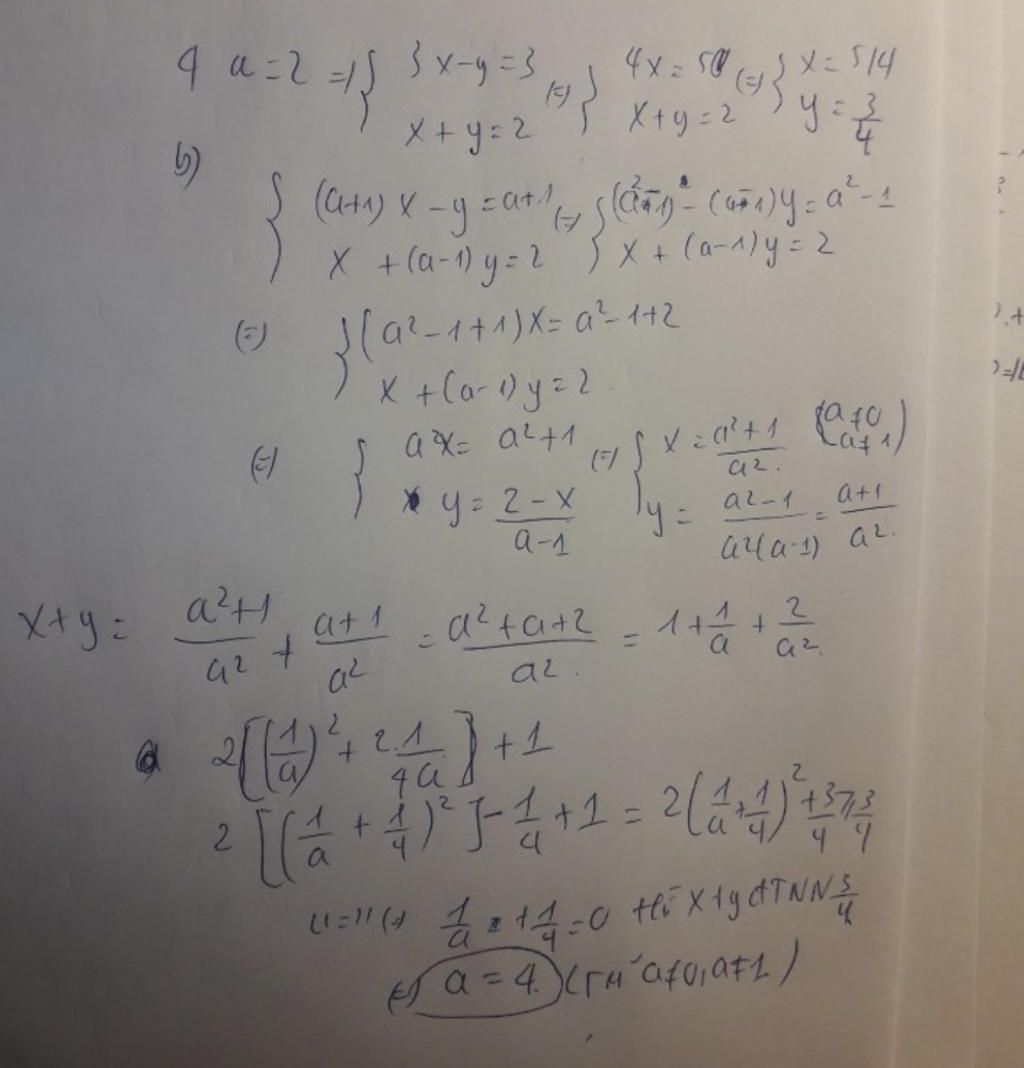 4 a=2 => { 3x-y=3 (=) { 4x=5 (=) { x=5/4
x+y=2 x+y=2 y=3/4
b)
{ (a+1)x-y=a+1 (=) { (a²-1) - (a-1)y=a²-1
x+(a-1)y=2 { x+(a-1)y=2
(=) { (a²-1+1)x=a²-1+2
x+(a-1)y=2
(=) { a²x=a²+1 (=) { x=(a²+1)/a² (a≠0
a≠1)
y=(2-x)/(a-1) y=(a²-1)/(a²(a-1))=(a+1)/a²
x+y=(a²+1)/a²+(a+1)/a²=(a²+a+2)/a²=1+1/a+2/a²
2[(1/a)²+2.1/4a]+1
2[(1/a+1/4)²]-1/4+1=2(1/a+1/4)²+3/4≥3/4
"=" (=) 1/a+1/4=0 thì x+y đTNN 3/4
(=) a=4. (TM a≠0,a≠1)